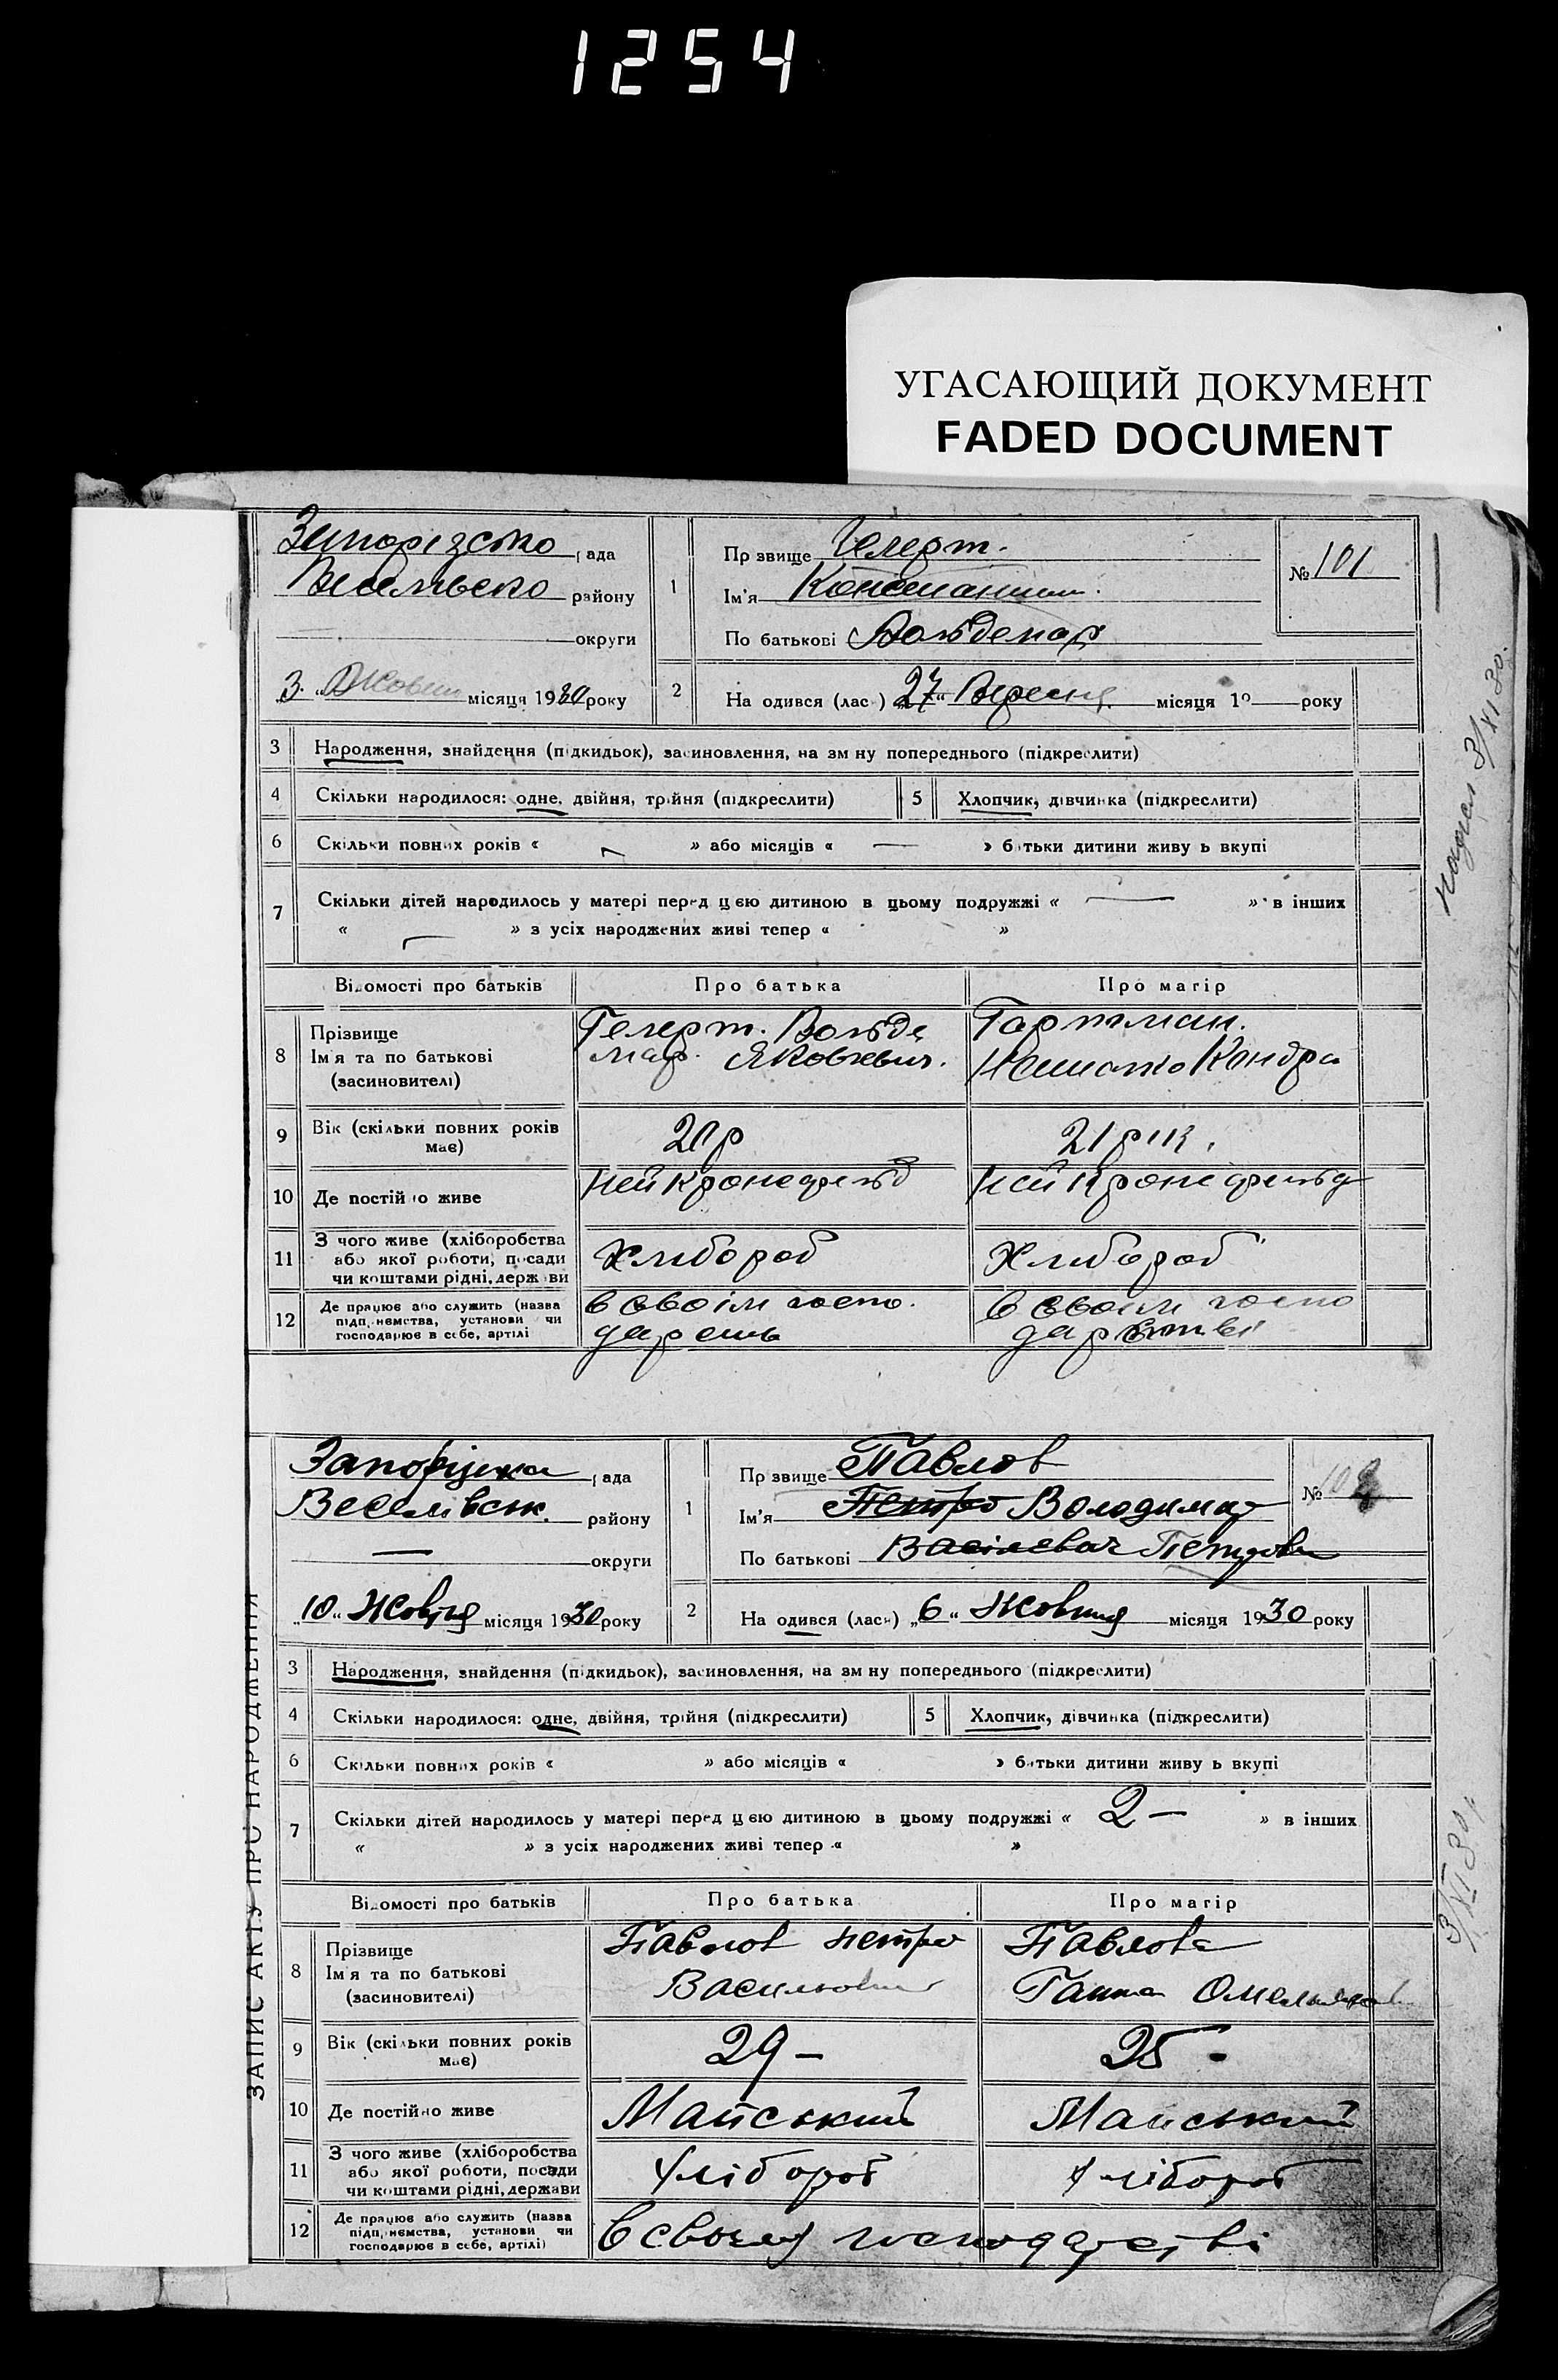 1254
УГАСАЮЩИЙ ДОКУМЕНТ
FADED DOCUMENT
ЗАПИС АКТУ ПРО НАРОДЖЕННЯ
Запорізсько ада
району
округи
3. Жовтн місяця 1930 року
1
Пр звище Гелерт.
Ім'я Константин.
По батькові Вольдемар
№ 101
2 На одився (лас ) „27“ Вересня місяця 19 року
3 Народження, знайдення (підкидьок), засиновлення, на зм ну попереднього (підкреслити)
4 Скільки народилося: одне, двійня, трійня (підкреслити) 5 Хлопчик, дівчинка (підкреслити)
6 Скільки повних років « — » або місяців « — » батьки дитини живу ь вкупі
7 Скільки дітей народилось у матері перед цією дитиною в цьому подружжі « — » в інших
« — » з усіх народжених живі тепер « »
Відомості про батьків Про батька Про матір
8 Прізвище
Ім'я та по батькові
(засиновителі)
Гелерт. Вольде
мар. Яковлевич.
Гартман.
Кондра
9 Вік (скільки повних років має)
20р 21 рік.
10 Де постійно живе
Нейкронсфельд Нейкронсфельд
11 З чого живе (хліборобства
або якої роботи, посади
чи коштами рідні, держ ви
Хлибороб Хлибороб
12 Де працює або служить (назва
підприємства, установи чи
господарює в себе, артілі
в своім госпо.
дарсть
в своїм госпо
дарстві
надіcл 3/XI 30.
Запорізька ада
Веселівськ. району
— округи
„10“ Жовтня місяця 1930 року
1
Пр звище Павлов
Ім'я Петро Володимир
По батькові Васілевич Петрови
№ 102
2 На одився (лась) „6“ Жовтня місяця 1930 року
3 Народження, знайдення (підкидьок), засиновлення, на зм ну попереднього (підкреслити)
4 Скільки народилося: одне, двійня, трійня (підкреслити) 5 Хлопчик, дівчинка (підкреслити)
6 Скільки повних років « » або місяців « » батьки дитини живу ь вкупі
7 Скільки дітей народилось у матері перед цією дитиною в цьому подружжі « 2 — » в інших
« » з усіх народжених живі тепер « »
Відомості про батьків Про батька Про матір
8 Прізвище
Ім'я та по батькові
(засиновителі)
Павлов Петро
Васильович
Павлова
Ганна Омельянов
9 Вік (скільки повних років має)
29 — 25 -
10 Де постійно живе
Майський Майський
11 З чого живе (хліборобства
або якої роботи, посади
чи коштами рідні, держави
Хлібороб Хлібороб
12 Де працює або служить (назва
підприємства, установи чи
господарює в себе, артілі)
в своему господарстві
3/XI 30 р